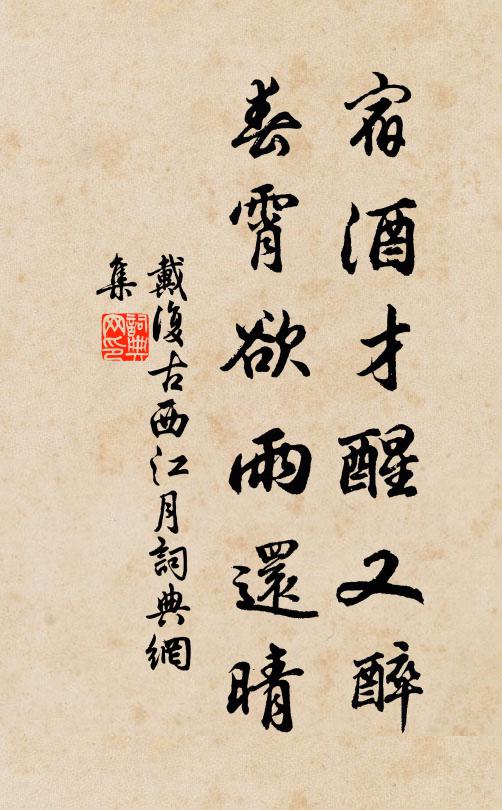 宿酒才醒又醉
春霄欲雨還晴
戴復古西江月詞典網
集
詞典
网印